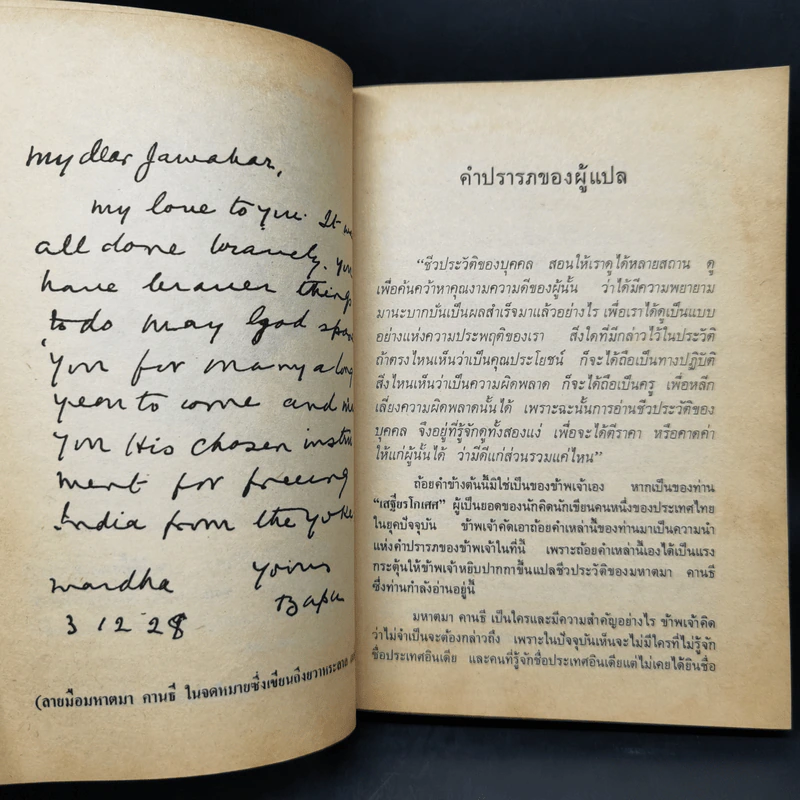 My dear Jawahar,
My love to you. It
all done bravely. You
have braver things
to do. May God
you for many a long
year to come and
you His chosen
ment for freeing
India from the yoke
Wardha Yours
3 12 28 Bapu
(ลายมือมหาตมา คานธี ในจดหมายซึ่งเขียนถึงยวาหระลาล
คำปรารภของผู้แปล
“ชีวประวัติของบุคคล สอนให้เราดูได้หลายสถาน ดู
เพื่อค้นคว้าหาคุณงามความดีของผู้นั้น ว่าได้มีความพยายาม
มานะบากบั่นเป็นผลสำเร็จมาแล้วอย่างไร เพื่อเราได้ดูเป็นแบบ
อย่างแห่งความประพฤติของเรา สิ่งใดที่มีกล่าวไว้ในประวัติ
ถ้าตรงไหนเห็นว่าเป็นคุณประโยชน์ ก็จะได้ถือเป็นทางปฏิบัติ
สิ่งไหนเห็นว่าเป็นความผิดพลาด ก็จะได้ถือเป็นครู เพื่อหลีก
เลี่ยงความผิดพลาดนั้นได้ เพราะฉะนั้นการอ่านชีวประวัติของ
บุคคล จึงอยู่ที่รู้จักดูทั้งสองแง่ เพื่อจะได้ตีราคา หรือคาดค่า
ให้แก่ผู้นั้นได้ ว่ามีดีแก่ส่วนรวมแค่ไหน”
ถ้อยคำข้างต้นนี้มิใช่เป็นของข้าพเจ้าเอง หากเป็นของท่าน
“เสฐียรโกเศศ” ผู้เป็นยอดของนักคิดนักเขียนคนหนึ่งของประเทศไทย
ในยุคปัจจุบัน ข้าพเจ้าคัดเอาถ้อยคำเหล่านี้ของท่านมาเป็นความนำ
แห่งคำปรารภของข้าพเจ้าในที่นี้ เพราะถ้อยคำเหล่านี้เองได้เป็นแรง
กระตุ้นให้ข้าพเจ้าหยิบปากกาขึ้นแปลชีวประวัติของมหาตมา คานธี
ซึ่งท่านกำลังอ่านอยู่นี้
มหาตมา คานธี เป็นใครและมีความสำคัญอย่างไร ข้าพเจ้าคิด
ว่าไม่จำเป็นจะต้องกล่าวถึง เพราะในปัจจุบันเห็นจะไม่มีใครที่ไม่รู้จัก
ชื่อประเทศอินเดีย และคนที่รู้จักชื่อประเทศอินเดียแต่ไม่เคยได้ยินชื่อ